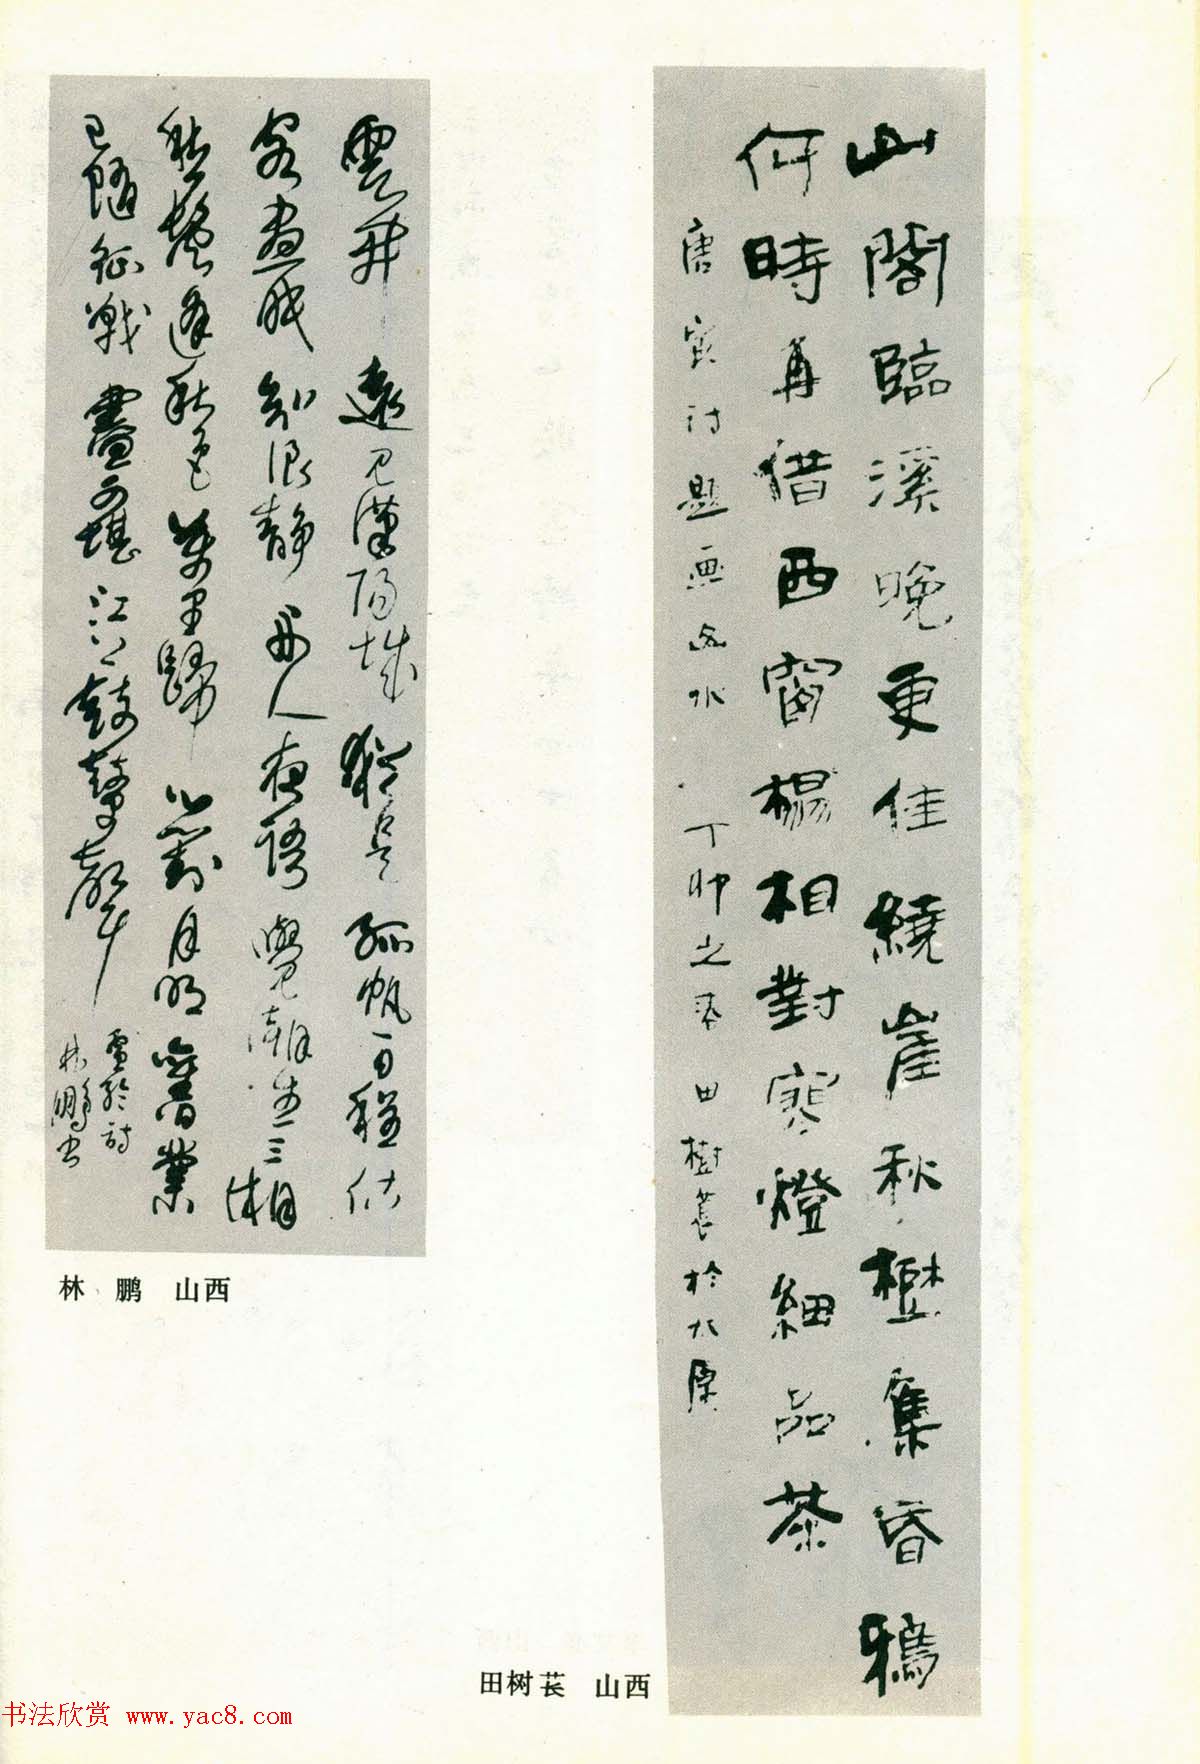 山閣臨溪晚更佳繞崖秋樹集昏鴉
何時再借西窗榻相對寒燈細品茶
唐寅詩題画山水 丁卯之春 田樹萇於太原
雲開遠見漢陽城猶是孤帆一日程估
客晝眠知浪靜舟人夜語覺潮生三湘
愁鬢逢秋色萬里歸心對月明舊業
已隨征戰盡更堪江上鼓鼙聲
盧綸詩
林鵬書
林 鹏 山西
田树苌 山西
书法欣赏 www.yac8.com